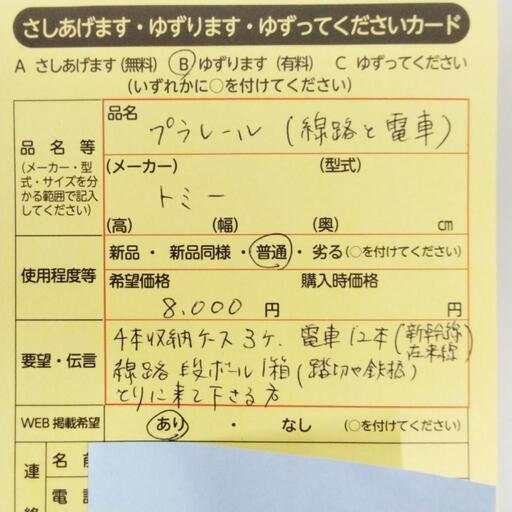 さしあげます・ゆずります・ゆずってくださいカード
A さしあげます(無料) Ⓑゆずります(有料) C ゆずってください
(いずれかに○を付けてください)
品名等
(メーカー・型
式・サイズを分
かる範囲で記入
してください)
品名
プラレール(線路と電車)
(メーカー) (型式)
トミー
(高) (幅) (奥) cm
使用程度等
新品・新品同様・普通・劣る(○を付けてください)
希望価格 購入時価格
8,000円 円
要望・伝言
4本収納ケース3ヶ. 電車12本(新幹線
在来線)
線路段ボール1箱(踏切や鉄橋)
とりに来て下さる方
WEB掲載希望
あり・なし (○を付けてください)
連
名
電